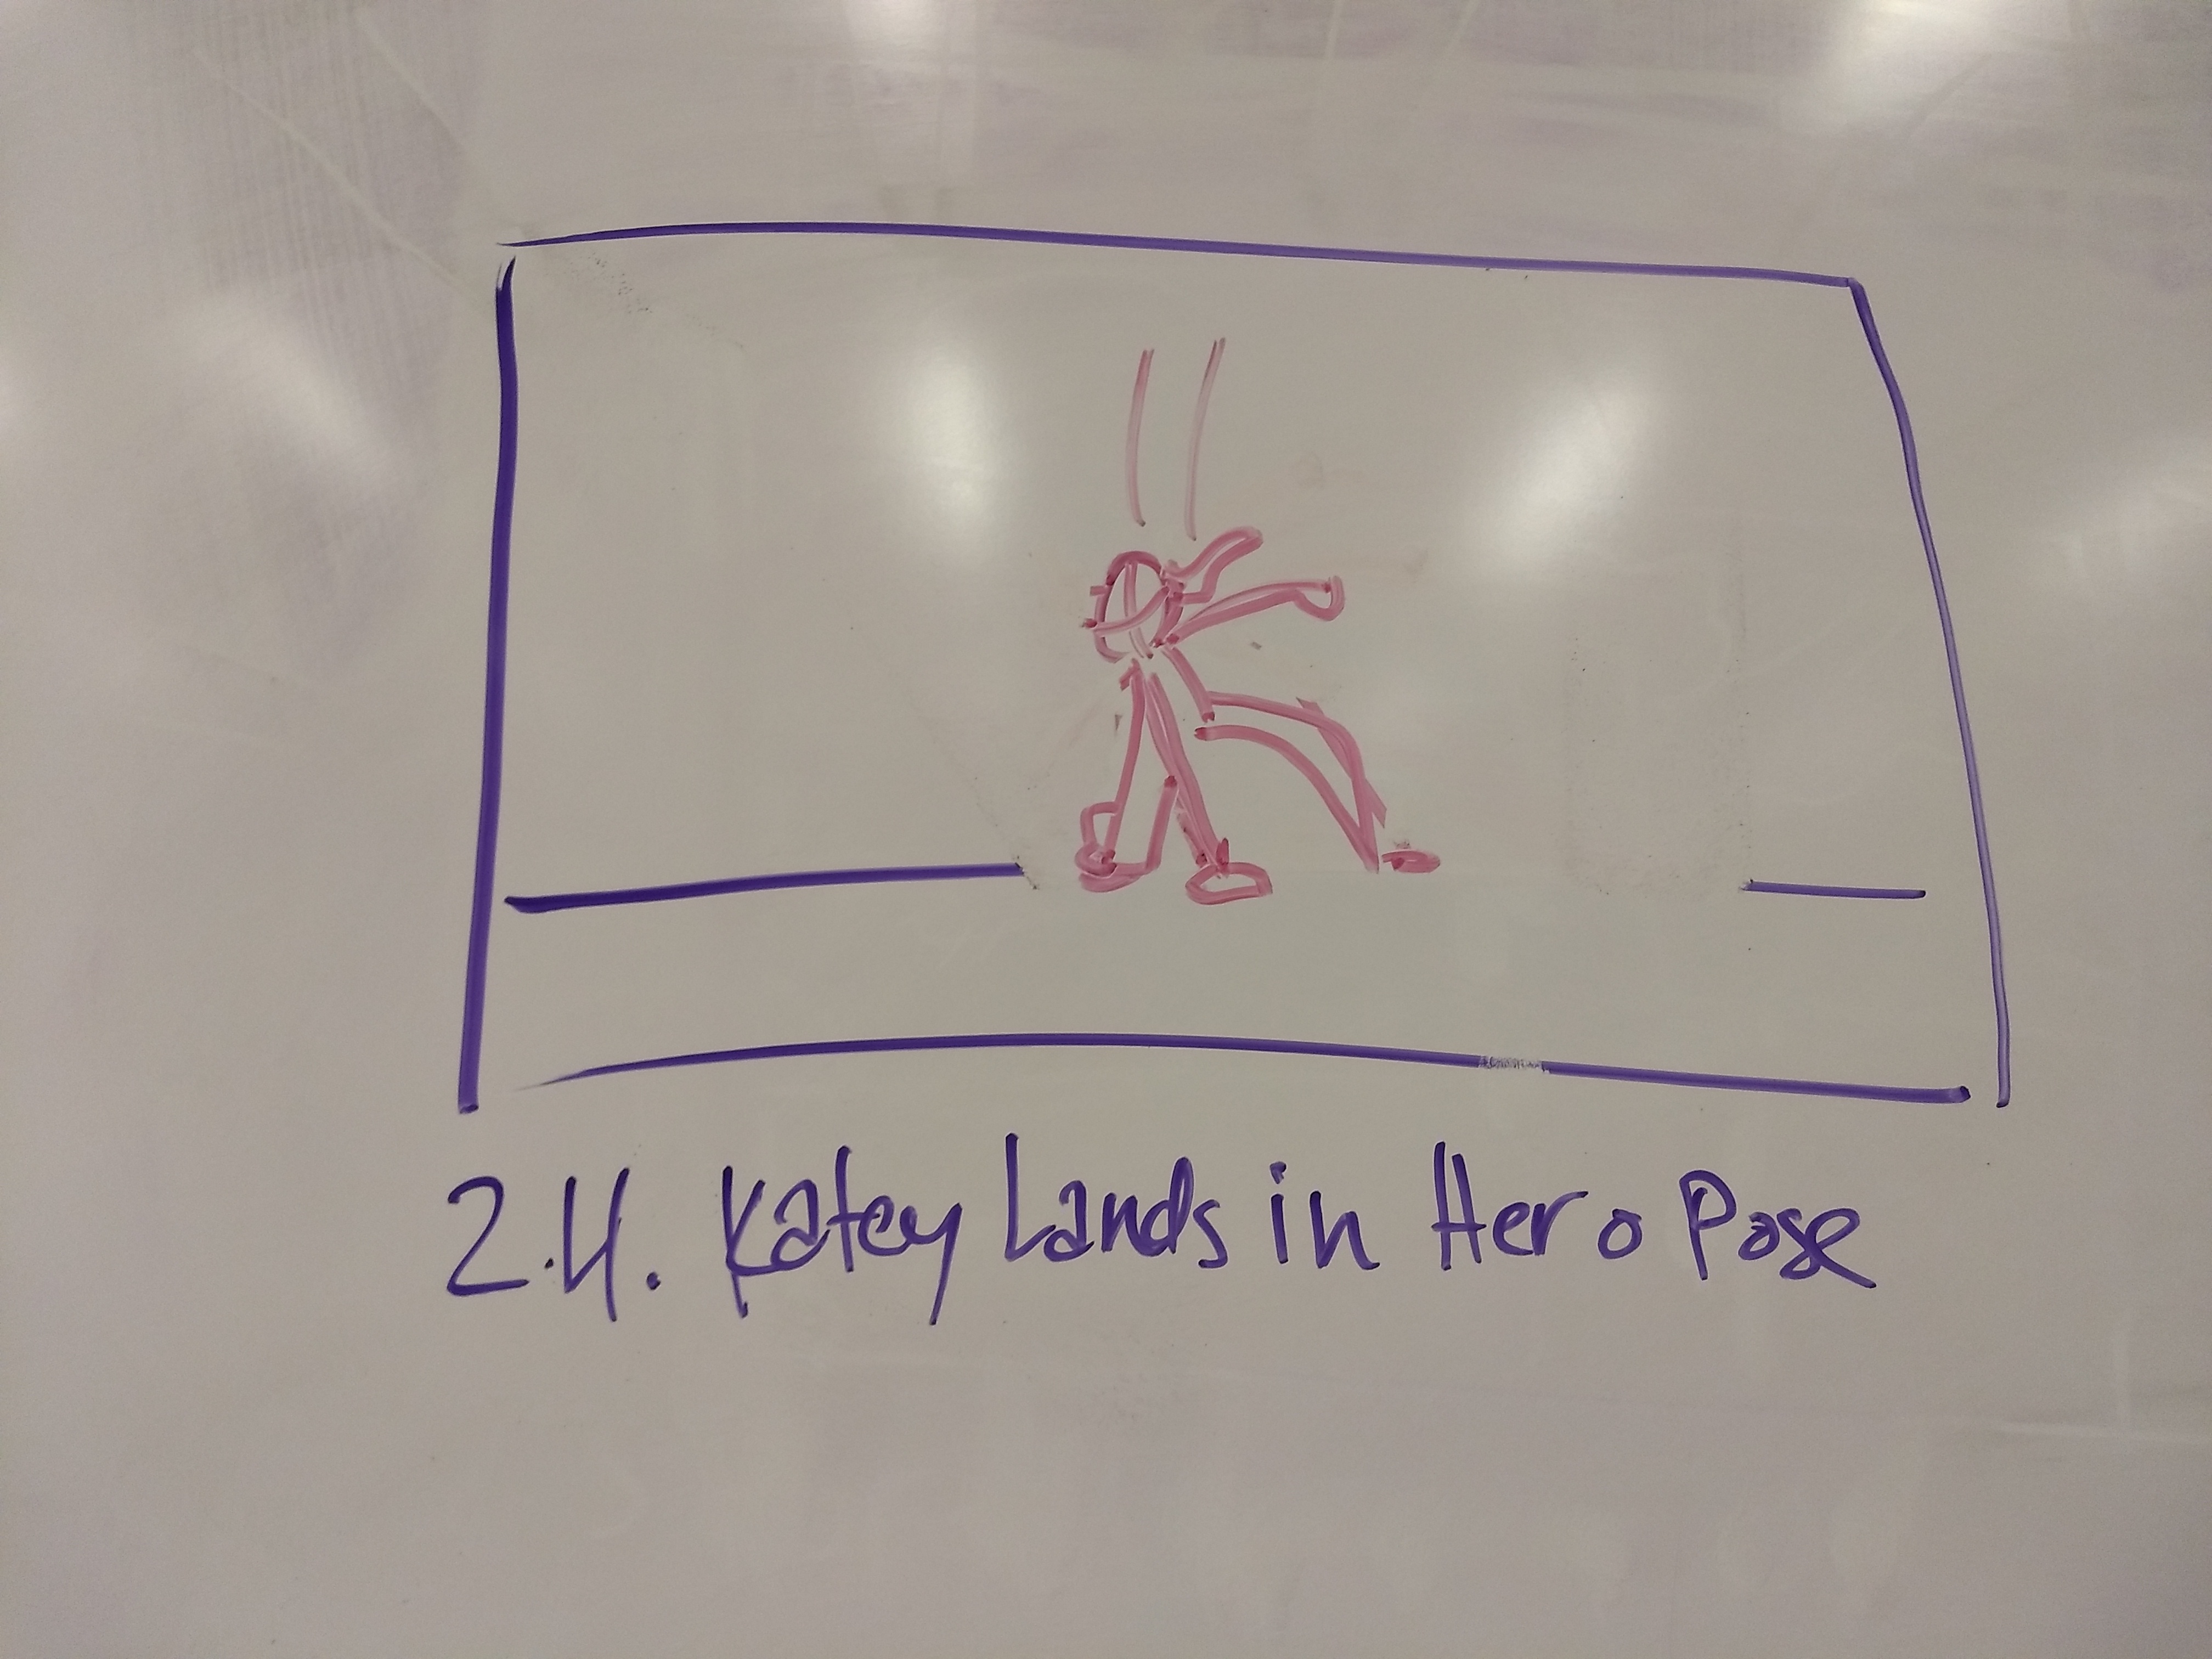 2.H. Katey Lands in Hero Pose